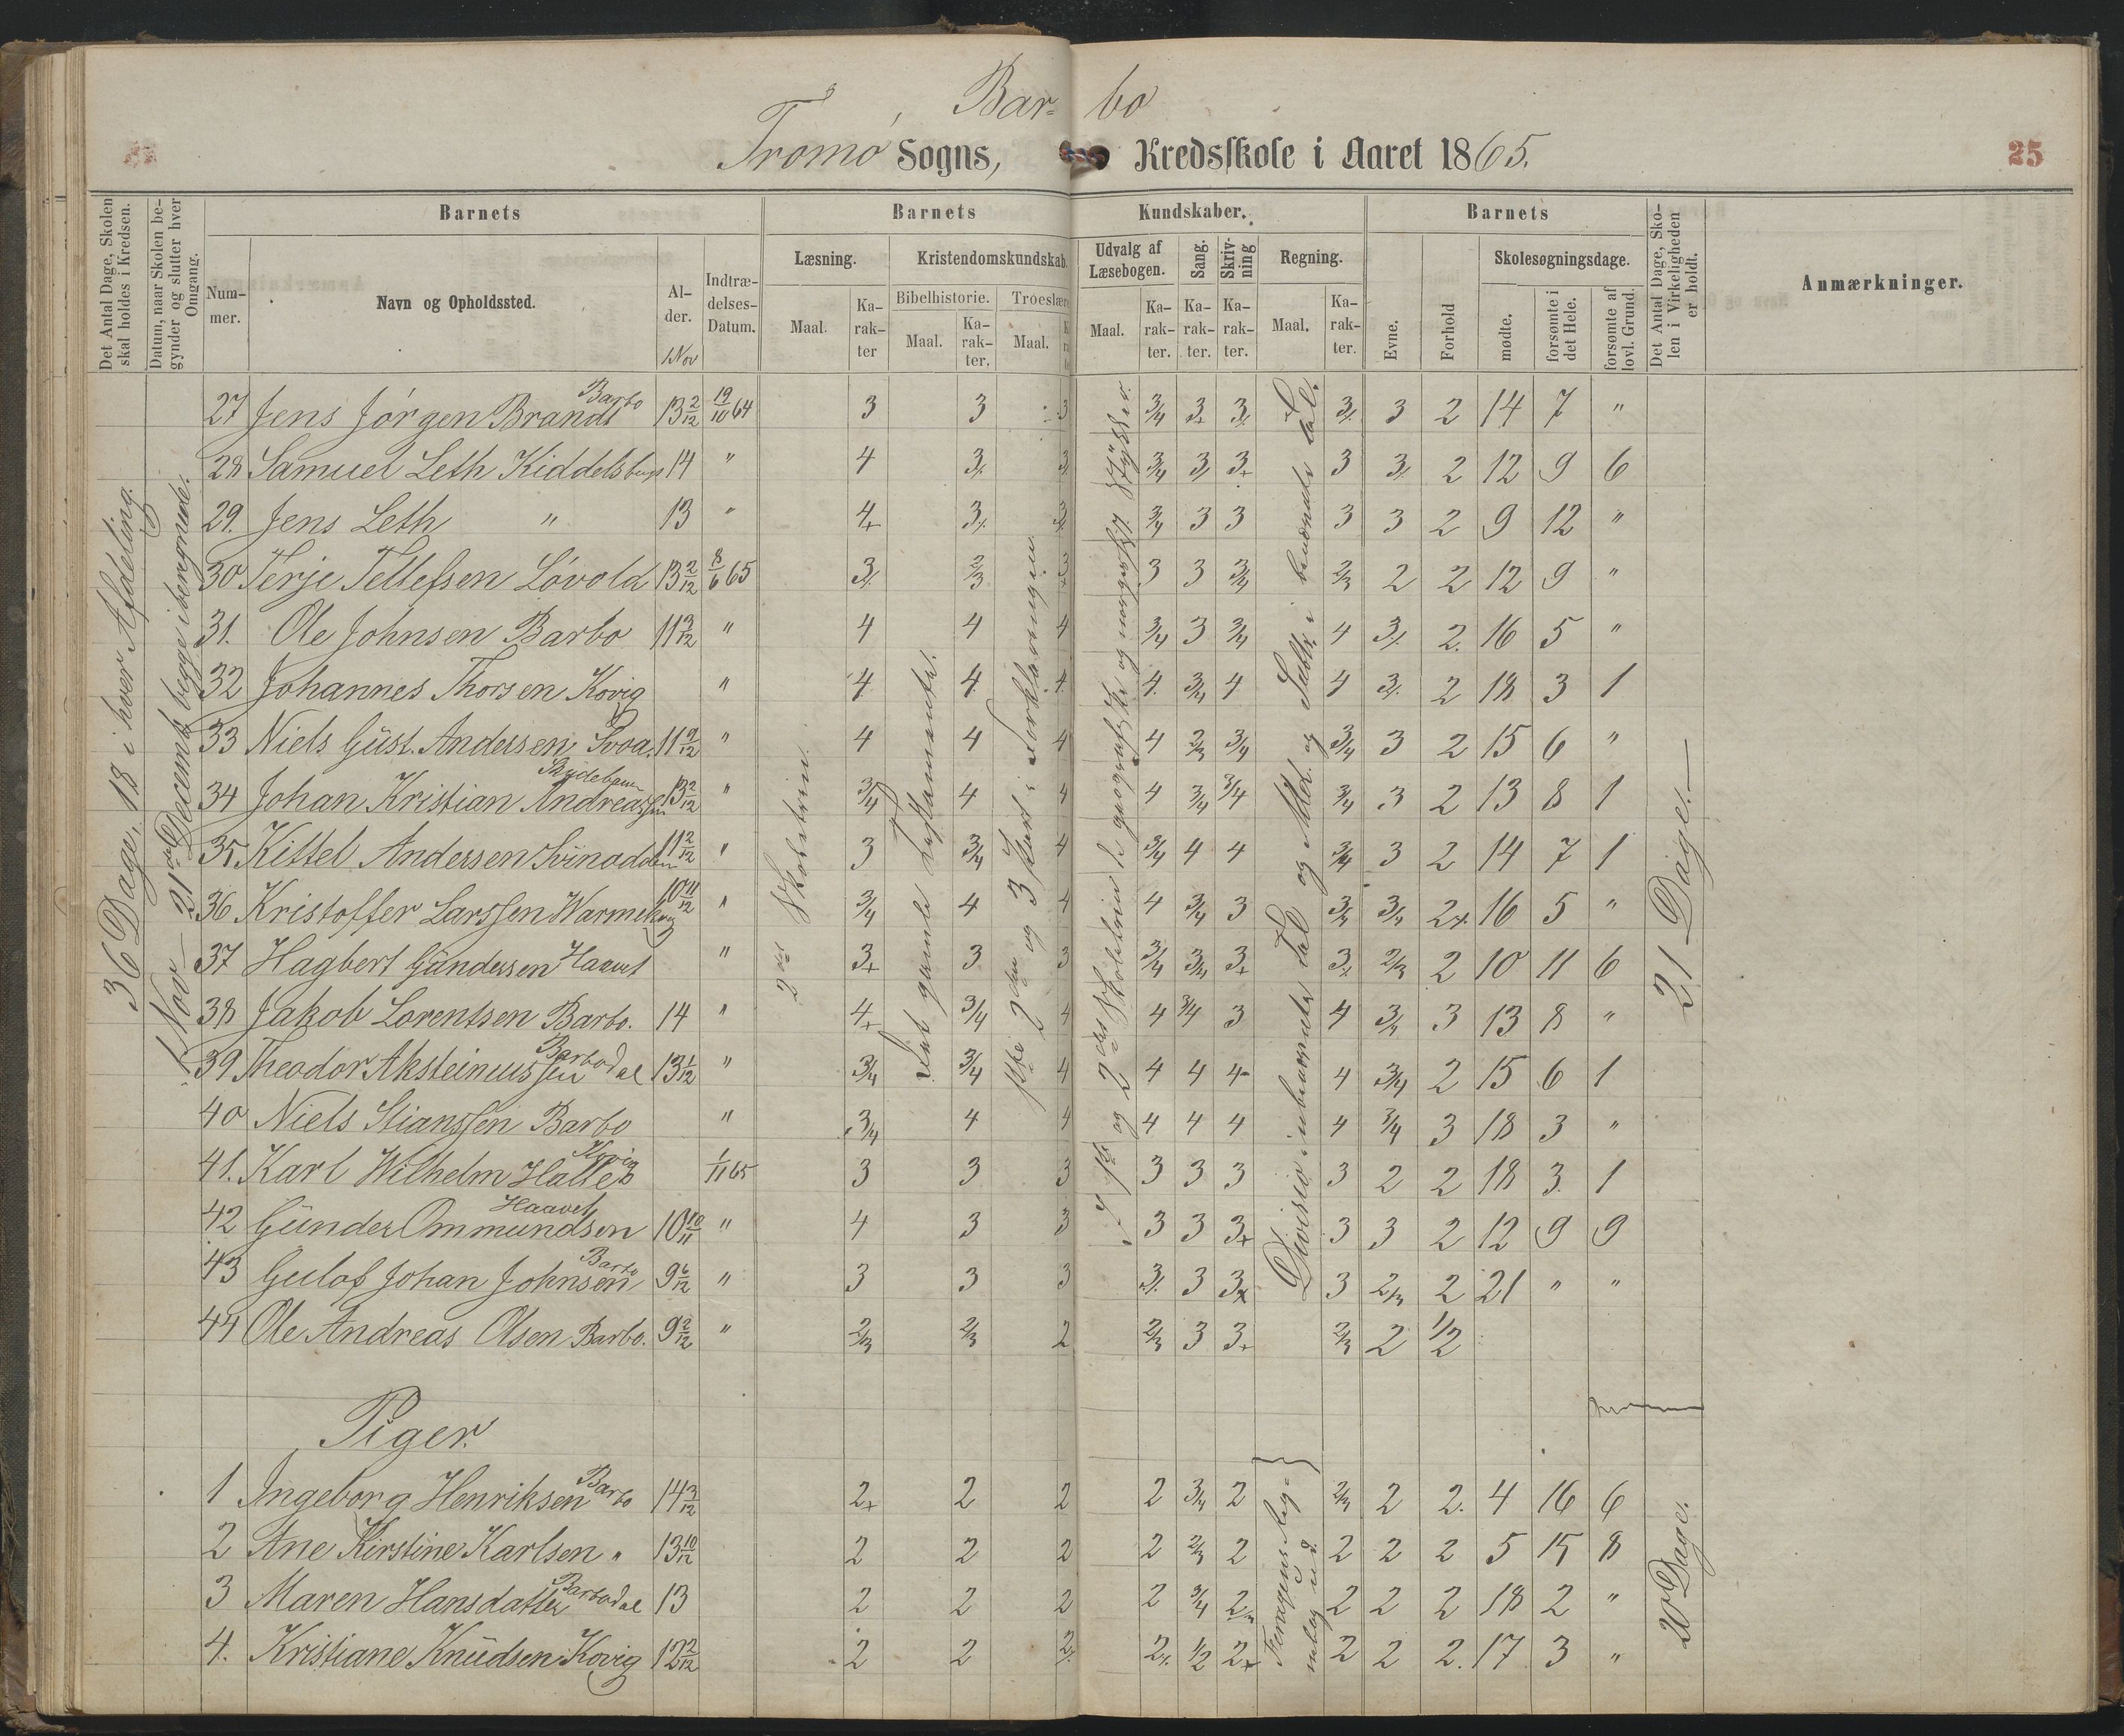 Bar- bo
Tromø Sogns, Kredsskole i Aaret 1865.
25
Det Antal Dage, Skolen skal holdes i Kredsen.
Datum, naar Skolen begynder og slutter hver Omgang.
Barnets
Nummer.
Navn og Opholdssted.
Alder.
1 Nov
Indtrædelses-Datum.
Barnets Kundskaber.
Læsning.
Maal.
Karakter
Kristendomskundskab.
Bibelhistorie.
Maal.
Karakter.
Troeslære
Maal.
Udvalg af Læsebogen.
Maal.
Karakter.
Sang.
Karakter.
Skrivning
Karakter.
Regning.
Maal.
Karakter.
Barnets
Evne.
Forhold
Skolesøgningsdage.
mødte.
forsømte i det Hele.
forsømte af lovl. Grund.
Det Antal Dage, Skolen i Virkeligheden er holdt.
Anmærkninger.
36 Dage, 18 i hver Afdeling.
1 Nov – 21de Decemb begge iberegnede.
2det Skoletrin.
Det gamle Testamente.
1ste 2den og 3 Part i Forklaringen.
1ste og 2det Skoletrin de geografiske og norgesh. Stykker.
Divisio i ubenævnte Tal og Add. og Subtr. i benævnte Tal.
27 Jens Jørgen Brandt Barbo 13 2/12 19/10 64 3 3 3 3/4 3+ 3/. 3/. 3 2 14 7 "
28 Samuel Leth Kiddelsberg 14 " 4 3/. 3/. 3/4 3/. 3+ 3 3/. 2 12 9 6
29. Jens Leth " 13 " 4+ 3/. 3/. 3/4 3 3 3 3 2 9 12 "
30 Terje Tellefsen Løvold 13 2/12 8/6 65 3/. 2/3 3+ 3 3 3/4 2/3 2 2 12 9 "
31. Ole Johnsen Barbo 11 3/12 " 4 4 4 3/4 3 3/4 4 3/. 2. 16 5 "
32 Johannes Thorsen Kovig " 4 4. 4. 4. 3/4 4 4 3/. 2 18 3 1
33 Niels Güst. Andersen 11 9/12 " 4 4 4 4 2/3 3/4 3/4 3 2 15 6 "
34 Johan Kristian Andreassen 13 2/12 " 3/4 4 4 4 3/4 3/4 3/4 3 2 13 8 1
35 Kittel Andersen Svinodden 11 2/12 " 3 3/4 4 3/4 4 4 3/4 3 2 14 7 1
36 Kristoffer Larssen 10 11/12 " 3/4 4 4 4 3/4 3 3/4 3/4 2+. 16 5 "
37 Hagbert Gündersen Haavet " 3+ 3 3 3/4 3/4 3+ 3+ 2/3 2 10 11 6
38 Jakob Lorentsen Barbo. 14 " 4+ 3/4 4 4 3/4 3 4 3/4 3 13 8 "
39 Theodor Aksteinussen Barbodal 13 1/12 " 3/4 3/4 4 4 4 4- 4 3/4 2 15 6 1
40 Niels Stianssen Barbo " 3/4 4 4 4 4 4 4 3/4 3 18 3 "
41. Karl Wilhelm Halles Kovig 1/11 65 3 3 3 3 3 3 3 2 2 18 3. 1
42 Günder Ommundsen Haavet 10 10/11 " 4 3 3 3 3 3+ 3 3 2 12 9 9
43 Gulof Johan Johnsen Barbo 9 6/12 " 3 3 3 3/. 3 3x 3 2/3 2 21 " "
44 Ole Andreas Olsen Barbo. 9 2/12 " 2/3 2/3 2 2/3 3 3+ 2/3 2 1/2
21 Dage. –
Piger.
1 Ingeborg Henriksen Barbo 14 3/12 2+ 2 2 2 3/4 2 2/3 2 2. 4 16 6
2 Ane Kirstine Karlsen " 13 10/12 2 2 2 2 2/3 2 2 2 2 5 15 8
3 Maren Hansdatter Barbodal 13 2 2 2 2 3/4 2 2 2 2 18 2 "
4. Kristiane Knüdsen Kovig 12 2/12 2 2 2/. 2/. 1/2 2+ 2 2 2. 17 3 "
20 Dage.